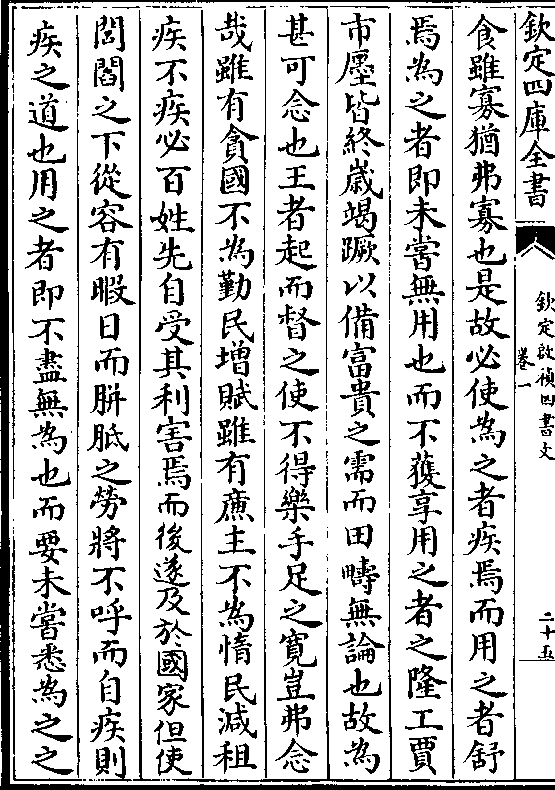 欽定四庫全書
欽定啟禎四書文
卷一
二十五
食雖寡猶弗寡也是故必使為之者疾焉而用之者舒
焉為之者即未嘗無用也而不獲享用之者之隆工賈
市廛皆終歲竭蹶以備富貴之需而田疇無論也故為
甚可念也王者起而督之使不得樂手足之寛豈弗念
哉雖有貪國不為勤民增賦雖有廉主不為惰民減租
疾不疾必百姓先自受其利害焉而後遂及於國家但使
閭閻之下從容有暇日而胼胝之勞將不呼而自疾則
疾之道也用之者即不盡無為也而要未嘗悉為之之